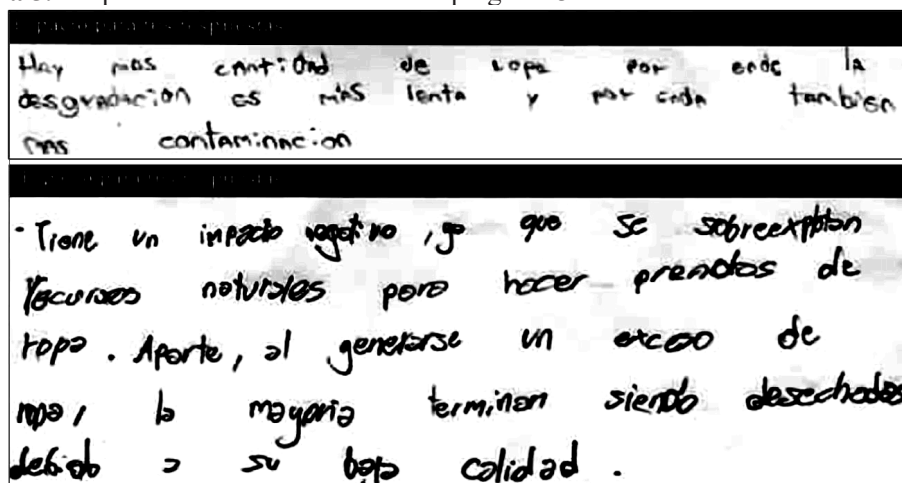 Espacio para tus respuestas
Hay mas cantidad de ropa por ende la
desgradacion es mas lenta y por ende tambien
mas contaminacion
- Tiene un impacto negativo, ya que se sobreexplotan
recursos naturales para hacer prendas de
ropa. Aparte, al generarse un exceso de
ropa, la mayoria terminan siendo desechadas
debido a su baja calidad.